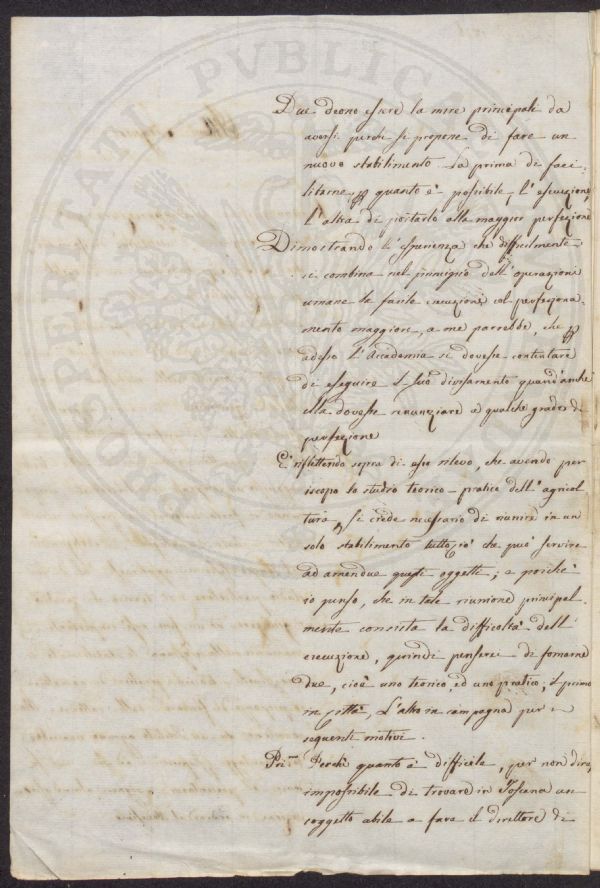 Due deono essere le mire principali da
aversi perchi si propone di fare un
nuovo stabilimento. La prima di faci=
litarne, p quanto è possibile, l'esecuzione,
l'altra di portarlo alla maggior perfezione
Dimostrando l'esperienza che difficilmente
si combina nel principio dell'operazioni
umane la facile esecuzione col perfeziona=
mento maggiore, a me parrebbe, che p
adesso l'Academia si dovesse contentare
di eseguire il suo divisamento quand'anche
ella dovesse renunziare a qualche grado di
perfezione
E riflettendo sopra di esso rilevo, che avendo per
iscopo lo studio teorico-pratico dell'agricol
tura, si crede necessario di riunire in un
solo stabilimento tutto ciò che può servire
ad amendue questi oggetti; e poichè
io penso, che in tale riunione principal=
mente consista la difficoltà dell'
esecuzione, quindi penserei di formarne
due, cioè uno teorico, ed uno pratico, il primo
in Città, l'altro in campagna per i
seguenti motivi.
Pri.mo Perchè quanto è difficile, per non dire
impossibile di trovare in Toscana un
soggetto abile a fare il direttore di
PROSPERITATI PVBLICAE